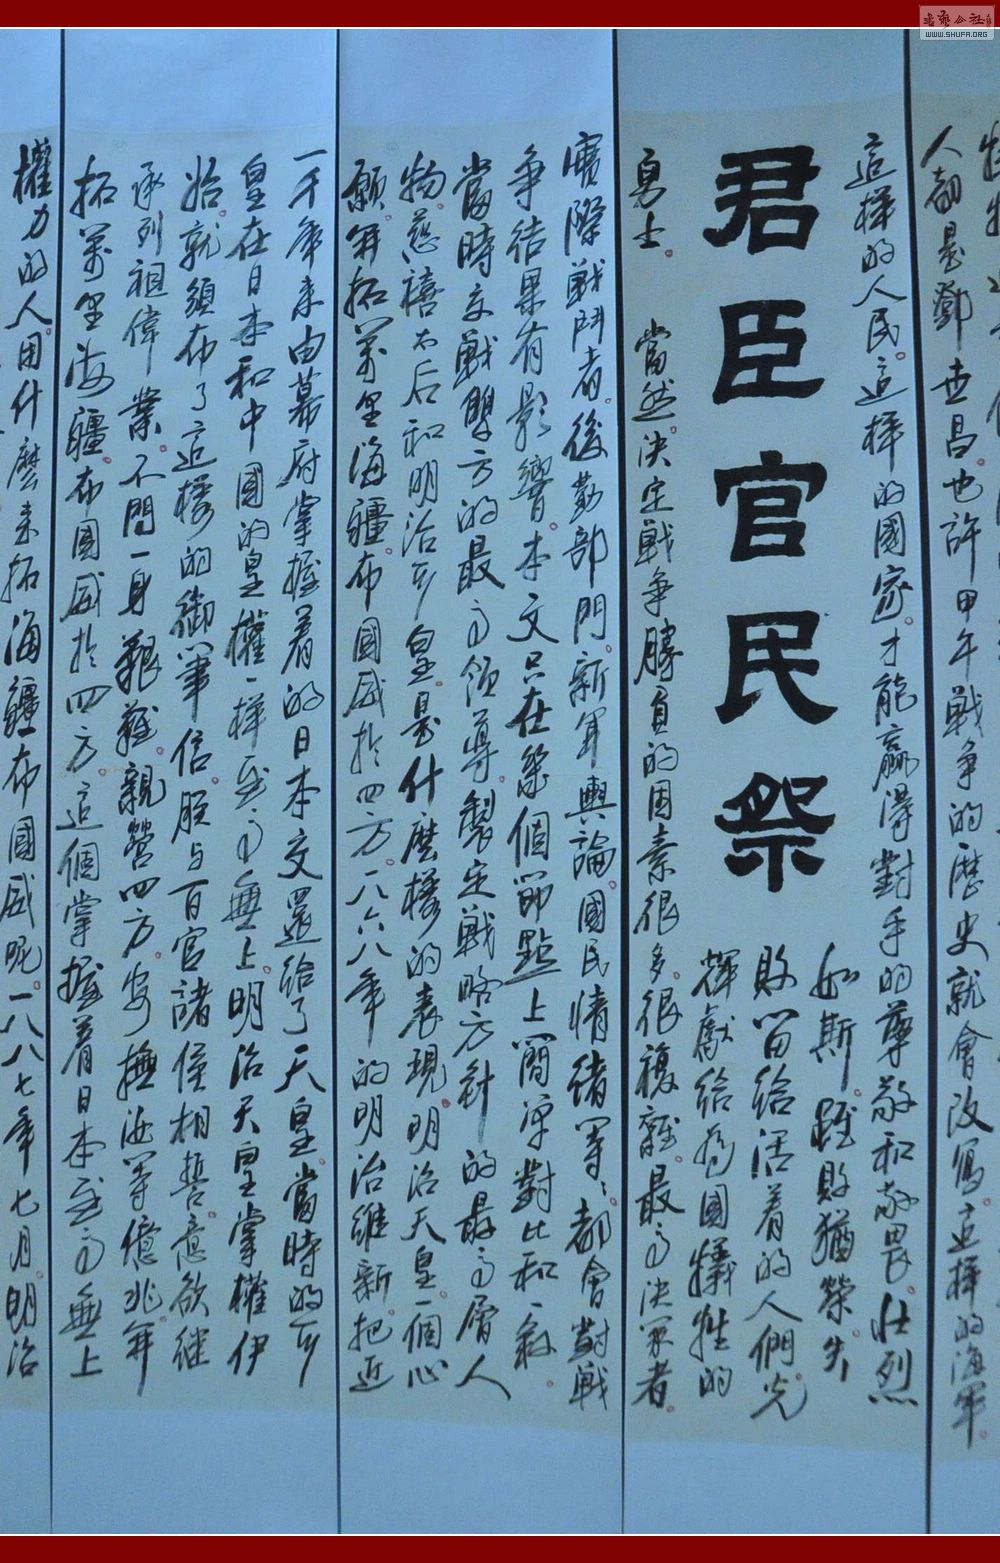 人都是鄧世昌也許甲午戰爭的歷史就會改寫。這樣的海軍。
這樣的人民。這樣的國家。才能贏得對手的尊敬和敬畏。壯烈
如斯。雖敗猶榮。失
敗留給活着的人們。光
輝獻給爲國犧牲的
君臣官民祭
勇士。
當然。決定戰爭勝負的因素很多。很複雜。最高決策者。
實際戰鬥者。後勤部門。新軍輿論。國民情緒等。都會對戰
爭結果有影響。本文只在幾個節點上簡單對比和一敘。
當時交戰雙方的最高領導製定戰略方針的最高層人
物。慈禧太后和明治天皇是什麼樣的表現。明治天皇一個心
願。開拓萬里海疆。布國威於四方。一八六八年的明治維新把近
一千年來由幕府掌握着的日本交還給了天皇。當時的天
皇在日本和中國的皇權一樣至高無上。明治天皇掌權伊
始。就頒布了這樣的御筆信。朕与百官諸侯相誓。意欲继
承列祖偉業。不問一身艱難。親營四方。安撫汝等億兆。開
拓萬里海疆。布國威於四方。這個掌握着日本至高無上
權力的人用什麼来拓海疆布國威呢。一八八七年七月。明治
書藝公社
WWW.SHUFA.ORG